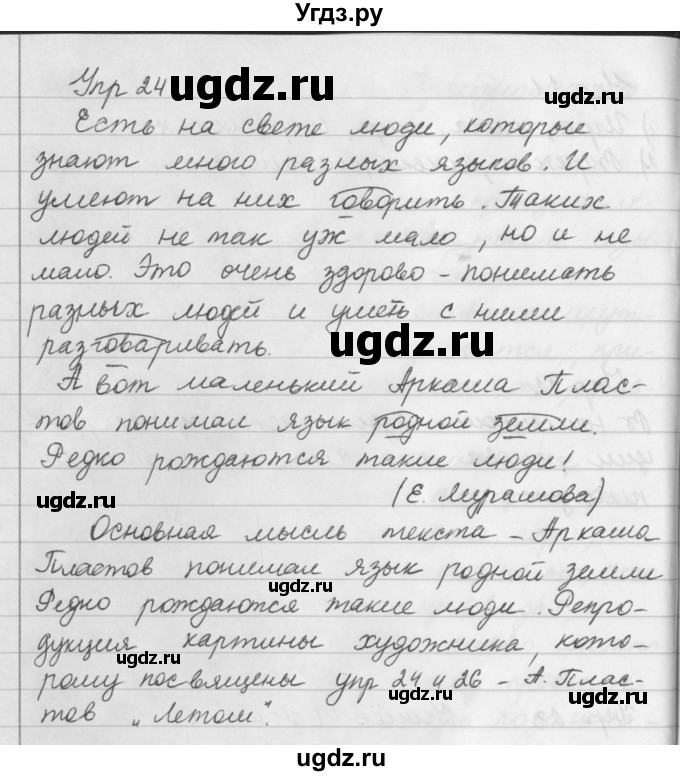 Угдз.ру
Упр 24
Есть на свете люди, которые
знают много разных языков. И
умеют на них говорить. Таких
людей не так уж мало, но и не
мало. Это очень здорово - понимать
разных людей и уметь с ними
разговаривать.
А вот маленький Аркаша Плас-
тов понимал язык родной земли.
Редко рождаются такие люди!
(Е. Мурашова)
Основная мысль текста - Аркаша
Пластов понимал язык родной земли
Редко рождаются такие люди. Репро-
дукция картины художника, кото-
рому посвящены упр 24 и 26 - А. Плас-
тов "Летом".
ugdz.ru
ugdz.ru
ugdz.ru
ugdz.ru
ugdz.ru
ugdz.ru
ugdz.ru
ugdz.ru
ugdz.ru